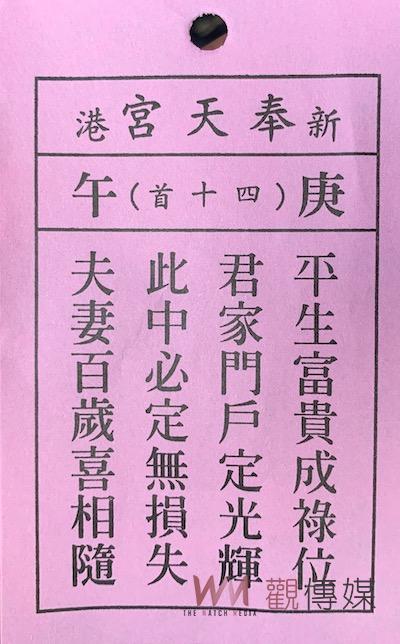 新奉天宮港
庚(四十首)午
平生富貴成祿位
君家門戶定光輝
此中必定無損失
夫妻百歲喜相隨
觀傳媒
THE WATCH MEDIA